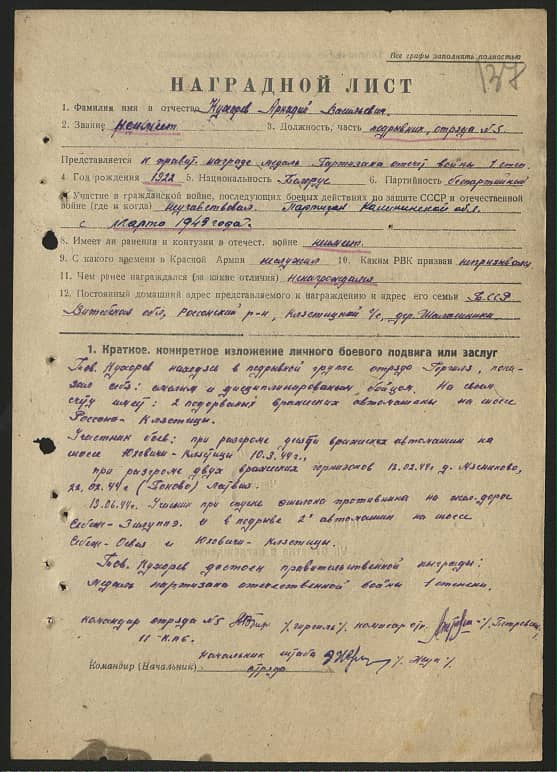 Все графы заполнять полностью
137
НАГРАДНОЙ ЛИСТ
1. Фамилия имя и отчество Кухорев Аркадий Васильевич.
2. Звание неимеет 3. Должность, часть подрывник, отряда №5.
Представляется к правит. награде медаль Партизана отечест войны 1 степ.
4. Год рождения 1922 5. Национальность Белорус 6. Партийность беспартийный
7. Участие в гражданской войне, последующих боевых действиях по защите СССР и отечественной
войне (где и когда) неучавствовал. Партизан Калининской обл.
с марта 1943 года.
8. Имеет ли ранения и контузии в отечест. войне неимеет.
9. С какого времени в Красной Армии неслужил 10. Каким РВК призван непризывался
11. Чем ранее награждался (за какие отличия) Ненаграждался
12. Постоянный домашний адрес представляемого к награждению и адрес его семьи БССР
Витебская обл, Россонский р-н, Клястицкий с/с, дер.
1. Краткое, конкретное изложение личного боевого подвига или заслуг
Тов. Кухорев находясь в подрывной группе отряда пока-
зал себя: смелым и дисциплинированым бойцом. На своем
счету имеет: 2 подорваные вражеских автомашины на шоссе
Россоно-Клястицы.
Участник боев: при разгроме десяти вражиских автомашин на
шоссе Юховичи-Клястицы 10.3.44г.,
при разгроме двух вражеских горнизонов 13.02.44г. д.
22.02.44г. Латвия.
13.06.44г. Участник при спуске эшелона противника на жел-дороге
Себеж-Зилуппэ. и в подрыве 2х автомашин на шоссе
Себеж-Освея и Юховичи-Клястицы.
Тов. Кухорев достоен правительственной награды:
Медаль партизана отечественной войны 1 степени.
командир отряда №5 комисар отр.
11 К.П.Б.
начальник штаба
Командир (Начальник) отряда